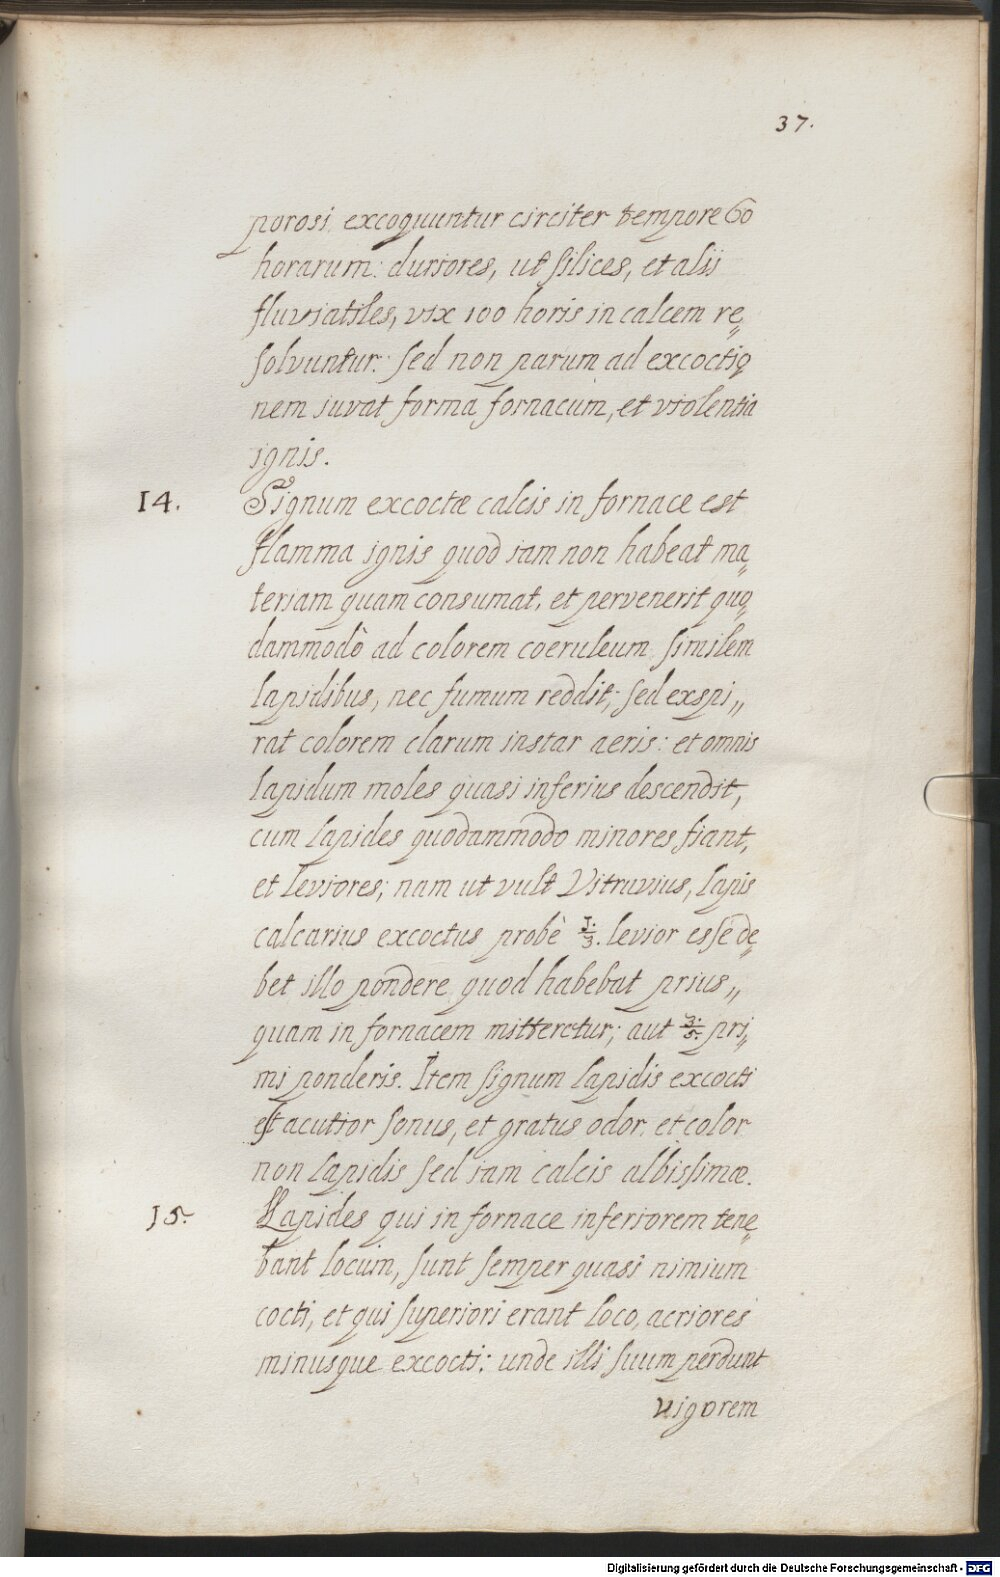 37.
porosi excoquuntur circiter tempore 60
horarum: duriores, ut silices, et alii
fluviatiles, vix 100 horis in calcem re„
solvuntur: sed non parum ad excoctio„
nem iuvat forma fornacum, et violentia
ignis.
14. Signum excoctæ calcis in fornace est
flamma ignis quod iam non habeat ma„
teriam quam consumat, et pervenerit quo„
dammodò ad colorem coeruleum similem
lapidibus, nec fumum reddit, sed exspi„
rat colorem clarum instar aeris: et omnis
lapidum moles quasi inferius descendit,
cum lapides quodammodo minores fiant,
et leviores; nam ut vult Vitruvius, lapis
calcarius excoctus probè 1/3. levior esse de„
bet illo pondere quod habebat prius„
quam in fornacem mitteretur; aut 3/5. pri„
mi ponderis. Item signum lapidis excocti
est acutior sonus, et gratus odor, et color
non lapidis sed iam calcis albissimæ.
15. Lapides qui in fornace inferiorem tene„
bant locum, sunt semper quasi nimium
cocti, et qui superiori erant loco, acriores
minusque excocti: unde illi suum perdunt
vigorem
Digitalisierung gefördert durch die Deutsche Forschungsgemeinschaft - DFG